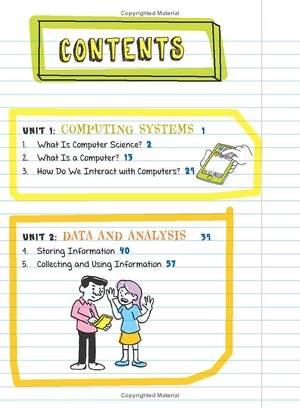 Copyrighted Material
CONTENTS
UNIT 1: COMPUTING SYSTEMS 1
1. What Is Computer Science? 2
2. What Is a Computer? 13
3. How Do We Interact with Computers? 29
UNIT 2: DATA AND ANALYSIS 39
4. Storing Information 40
5. Collecting and Using Information 57
Copyrighted Material